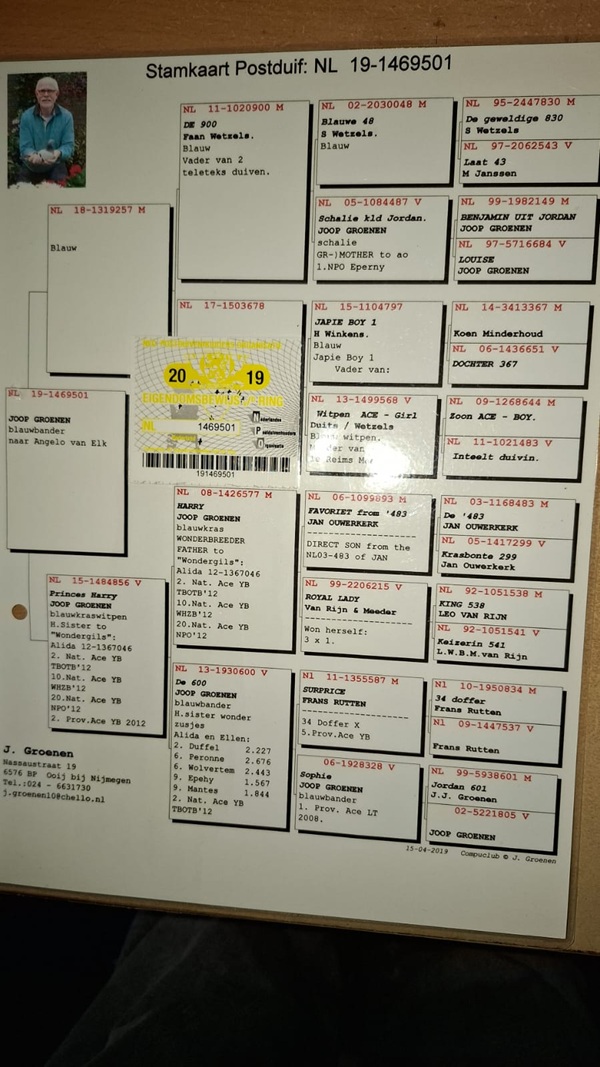 Stamkaart Postduif: NL 19-1469501
NL 19-1469501
JOOP GROENEN
blauwbander
naar Angelo van Elk
NL 18-1319257 M
Blauw
NL 15-1484856 V
Princes Harry
JOOP GROENEN
blauwkraswitpen
H.Sister to
"Wondergils":
Alida 12-1367046
2. Nat. Ace YB
TBOTB'12
10.Nat. Ace YB
WHZB'12
20.Nat. Ace YB
NPO'12
2. Prov.Ace YB 2012
NL 11-1020900 M
DE 900
Faan Wetzels.
Blauw
Vader van 2
teleteks duiven.
NL 17-1503678
20 19
EIGENDOMSBEWIJS RING
NL 1469501
Nederlandse
Postduivenhouders
Organisatie
191469501
NL 08-1426577 M
HARRY
JOOP GROENEN
blauwkras
WONDERBREEDER
FATHER to
"Wondergils":
Alida 12-1367046
2. Nat. Ace YB
TBOTB'12
10.Nat. Ace YB
WHZB'12
20.Nat. Ace YB
NPO'12
NL 13-1930600 V
De 600
JOOP GROENEN
blauwbander
H.sister wonder
zusjes
Alida en Ellen:
2. Duffel 2.227
6. Peronne 2.676
6. Wolvertem 2.443
9. Epehy 1.567
9. Mantes 1.844
2. Nat. Ace YB
TBOTB'12
NL 02-2030048 M
Blauwe 48
S Wetzels.
Blauw
NL 05-1084487 V
Schalie kld Jordan.
JOOP GROENEN
schalie
GR-)MOTHER to ao
1.NPO Eperny
NL 15-1104797
JAPIE BOY 1
H Winkens.
Blauw
Japie Boy 1
Vader van:
NL 13-1499568 V
Witpen ACE - Girl
Duits / Wetzels
witpen.
van
Reims
NL 06-1099893 M
FAVORIET from '483
JAN OUWERKERK
------------------
DIRECT SON from the
NL03-483 of JAN
NL 99-2206215 V
ROYAL LADY
Van Rijn & Meeder
------------------
Won herself:
3 x 1.
Nl 11-1355587 M
SURPRICE
FRANS RUTTEN
------------------
34 Doffer X
5.Prov.Ace YB
06-1928328 V
Sophie
JOOP GROENEN
blauwbander
1. Prov. Ace LT
2008.
NL 95-2447830 M
De geweldige 830
S Wetzels
NL 97-2062543 V
Laat 43
M Janssen
NL 99-1982149 M
BENJAMIN UIT JORDAN
JOOP GROENEN
NL 97-5716684 V
LOUISE
JOOP GROENEN
NL 14-3413367 M
Koen Minderhoud
NL 06-1436651 V
DOCHTER 367
NL 09-1268644 M
Zoon ACE - BOY.
NL 11-1021483 V
Inteelt duivin.
NL 03-1168483 M
De '483
JAN OUWERKERK
NL 05-1417299 V
Krasbonte 299
Jan Ouwerkerk
NL 92-1051538 M
KING 538
LEO VAN RIJN
NL 92-1051541 V
Keizerin 541
L.W.B.M.van Rijn
Nl 10-1950834 M
34 doffer
Frans Rutten
Nl 09-1447537 V
Frans Rutten
NL 99-5938601 M
Jordan 601
J.J. Groenen
02-5221805 V
JOOP GROENEN
J. Groenen
Nassaustraat 19
6576 BP Ooij bij Nijmegen
Tel.:024 - 6631730
j.groenen10@chello.nl
15-04-2019 Compuclub © J. Groenen